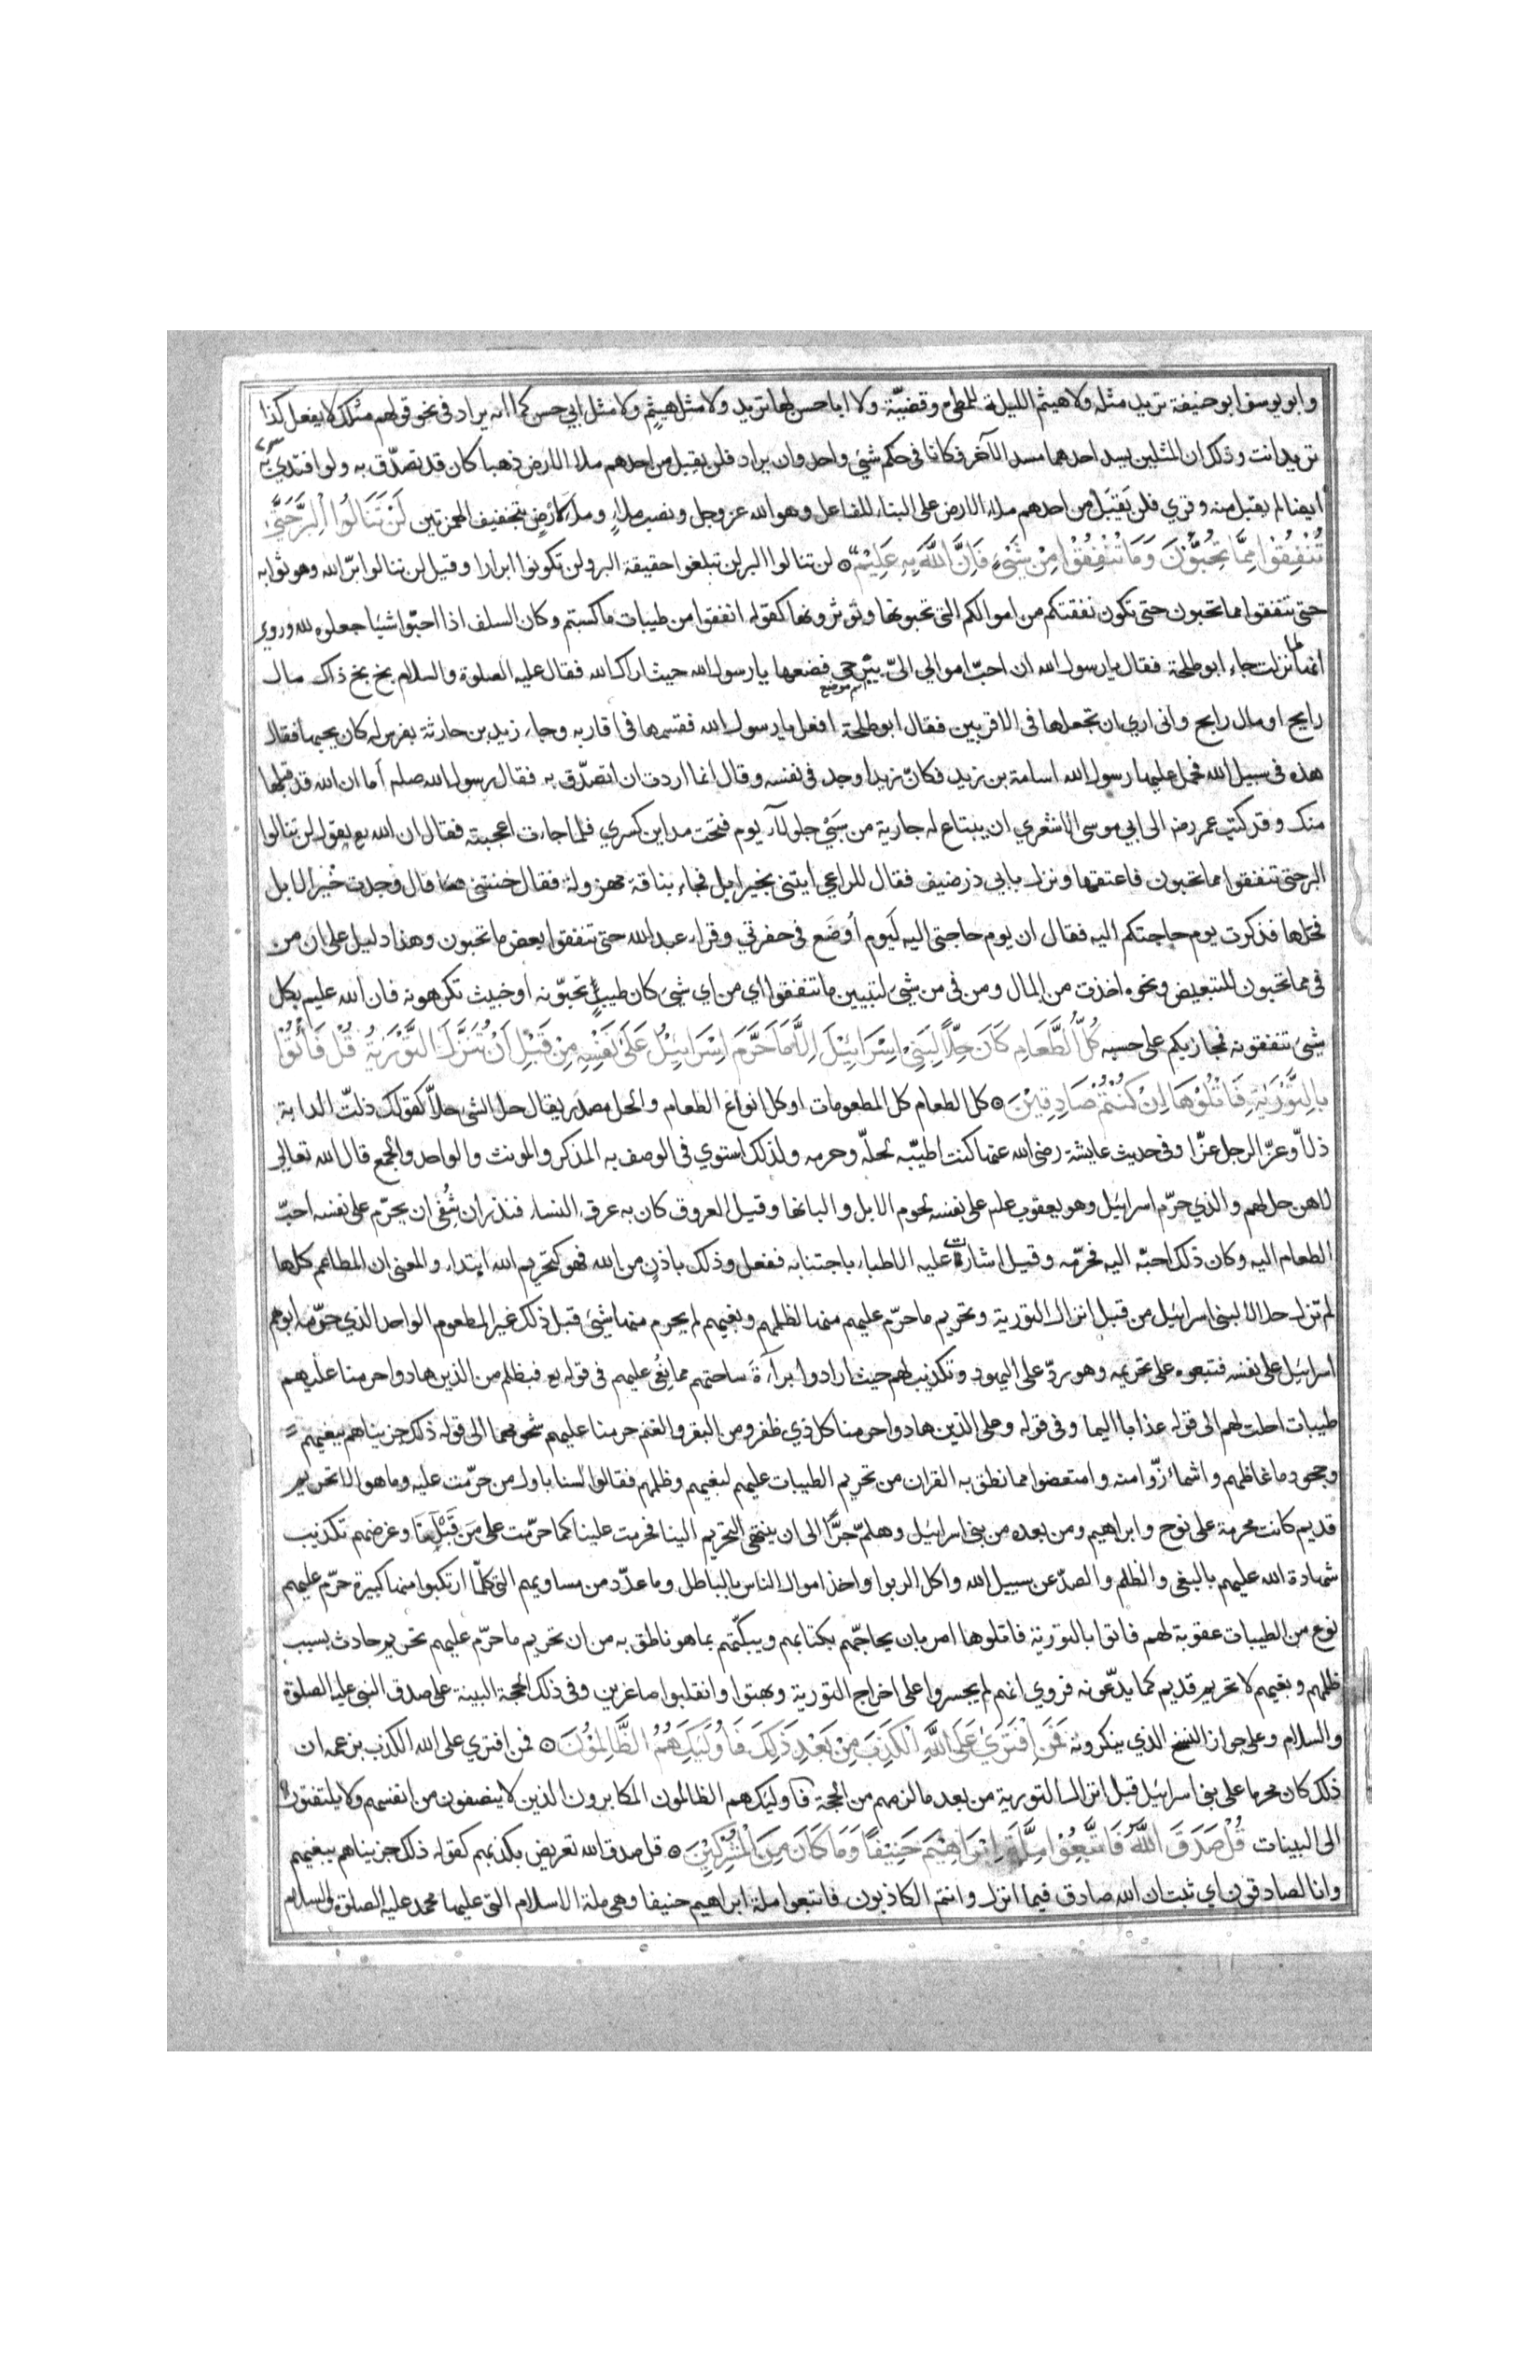 وابو يوسف ابو حنيفة تريد مثله ولا هيثم الليلة للمطي وقضيّة ولا ابا حسن لها تريد ولا مثل هيثم ولا مثل ابي حسن كما انه يراد في نحو قولهم مثلك لا يفعل كذا
تريد انت وذلك ان المثلين يسد احدهما مسد الآخر فكانا في حكم شئ واحد وان يراد فلن يقبل من احدهم ملأ الارض ذهبا كان قد تصدّق به ولو افتدي به
ايضا لم يقبل منه وقري فلن يَقبَل من احدهم ملأ الارض على البناء للفاعل وهو الله عز وجل ونصب ملأ ومل لارض بتخفيف الهمزتين لَنْ تَنَالُوا الْبِرَّ حَتَّى
تُنْفِقُوْا مِمَّا تُحِبُّوْنَ وَمَا تُنْفِقُوْا مِنْ شَيْءٍ فَاِنَّ اللّٰهَ بِهٖ عَلِيْمٌ ۝ لن تنالوا البر لن تبلغوا حقيقة البر ولن تكونوا ابرارا وقيل لن تنالوا برّ الله وهو ثوابه
حتى تنفقوا مما تحبون حتى تكون نفقتكم من اموالكم التي تحبونها وتوثرونها كقوله انفقوا من طيبات ما كسبتم وكان السلف اذا احبّوا شيئا جعلوه لله وروي
انها لما نزلت جاء ابو طلحة فقال يا رسول الله ان احبّ اموالي اليّ بيرحى اسم موضع فضعها يا رسول الله حيث اراك الله فقال عليه الصلوة والسلام بخ بخ ذاك مال
رايح او مال رابح واني اري ان تجعلها في الاقربين فقال ابو طلحة افعل يا رسول الله فقسمها في اقاربه وجاء زيد بن حارثة بفرس له كان يحبها فقال
هذه في سبيل الله فحمل عليها رسول الله اسامة بن زيد فكانّ زيدا وجد في نفسه وقال انما اردت ان اتصدّق به فقال رسول الله صلعم أما ان الله قد قبلها
منك وقد كتب عمر رضه الى ابي موسى الاشعري ان يبتاع له جارية من سَبْي جلولآء يوم فتحت مداين كسري فلما جاءت اعجبته فقال ان الله يع يقول لن تنالوا
البر حتى تنفقوا مما تحبون فاعتقها ونزل بابي ذر ضيف فقال للراعي ايتني بخير ابل فجاء بناقة مهزولة فقال خنتني فقال وجدت خير الابل
فحلها فذكرت يوم حاجتكم اليه فقال ان يوم حاجتي اليه لَيوم أوضَع في حفرتي وقراء عبد الله حتى تنفقوا بعض ما تحبون وهذا دليل على ان من
في مما تحبون للتبعيض ونحوه اخذت من المال ومن في من شئ لتبيين ما تنفقوا اي من اي شئ كان طيبٍ تحبّونه او خبيث تكرهونه فان الله عليم بكل
شئ تنفقونه فيجازيكم على حسبه كُلُّ الطَّعَامِ كَانَ حِلًّا لِبَنِيْ اِسْرَائِيْلَ اِلَّا مَا حَرَّمَ اِسْرَائِيْلُ عَلَى نَفْسِهٖ مِنْ قَبْلِ اَنْ تُنَزَّلَ التَّوْرٰيةُ قُلْ فَأْتُوْا
بِالتَّوْرٰيةِ فَاتْلُوْهَا اِنْ كُنْتُمْ صَادِقِيْنَ ۝ كل الطعام كل المطعومات او كل انواع الطعام والحل مصدر يقال حل الشئ حلاّ كقولك ذلّت الدابة
ذلاّ وعزّ الرجل عزّا وفي حديث عايشة رضي الله عنها كنت اطيّبه لحلّه وحرمه ولذلك استوي في الوصف به المذكر والمونث والواحد والجمع قال الله تعالى
لا هن حل لهم والذي حرّم اسرائيل وهو يعقوب علم على نفسه لحوم الابل والبانها وقيل العروق كان به عرق النسا فنذر ان شُفي ان يحرّم على نفسه احبّ
الطعام اليه وكان ذلك احبّه اليه فحرّمه وقيل اشارت عليه الاطباء باجتنابه ففعل وذلك باذن من الله فهو كتحريم الله ابتداء والمعنى ان المطاعم كلها
لم تزل حلالا لبني اسرائيل من قبل انزال التورية وتحريم ما حرّم عليهم منها لظلمهم وبغيهم لم يحرم منها شئ قبل ذلك غير المطعوم الواحد الذي حرّمه ابوهم
اسرائيل على نفسه فتبعوه على تحريمه وهو ردّ على اليهود وتكذيب لهم حيث ارادوا براءةَ ساحتهم مما نُعِيَ عليهم في قوله يع فبظلم من الذين هادوا حرمنا عليهم
طيبات احلت لهم الى قوله عذابا اليما وفي قوله وعلى الذين هادوا حرمنا كل ذي ظفر ومن البقر والغنم حرمنا عليهم شحومهما الى قوله ذلك جزيناهم ببغيهم
وجحود ما غاظهم واشمأزّوا منه وامتعضوا مما نطق به القران من تحريم الطيبات عليهم لبغيهم وظلمهم فقالوا لسنا باول من حرّمت عليه وما هو الا تحريم
قديم كانت محرمة على نوح وابراهيم ومن بعده من بني اسرائيل وهلمّ جرًّا الى ان ينتهى التحريم الينا فحرمت علينا كما حرّمت على مَن قَبْلَنا وغرضهم تكذيب
شهادة الله عليهم بالبغي والظلم والصدّ عن سبيل الله واكل الربوا واخذ اموال الناس بالباطل وما عدّد من مساويهم التي كلّما ارتكبوا منها كبيرة حرّم عليهم
نوع من الطيبات عقوبة لهم فاتوا بالتورية فاتلوها امر بان يحاجّهم بكتابهم ويبكّتهم بما هو ناطق به من ان تحريم ما حرّم عليهم تحريم حادث بسبب
ظلمهم وبغيهم لا تحريم قديم كما يدّعونه فروي انهم لم يجسروا على اخراج التورية وبهتوا وانقلبوا صاغرين وفي ذلك الحجة البينة على صدق النبي عليه الصلوة
والسلام وعلى جواز النسخ الذي ينكرونه فَمَنِ افْتَرٰى عَلَى اللّٰهِ الْكَذِبَ مِنْ بَعْدِ ذٰلِكَ فَاُولٰئِكَ هُمُ الظَّالِمُوْنَ ۝ فمن افتري على الله الكذب بزعمه ان
ذلك كان محرما على بني اسرائيل قبل انزال التورية من بعد ما لزمهم من الحجة فاوليك هم الظالمون المكابرون الذين لا ينصفون من انفسهم ولا يلتفتون
الى البينات قُلْ صَدَقَ اللّٰهُ فَاتَّبِعُوْا مِلَّةَ اِبْرَاهِيْمَ حَنِيْفًا وَمَا كَانَ مِنَ الْمُشْرِكِيْنَ ۝ قل صدق الله تعريض بكذبهم كقوله ذلك جزيناهم ببغيهم
وانا لصادقون اي ثبت ان الله صادق فيما انزل وانتم الكاذبون فاتبعوا ملة ابراهيم حنيفا وهي ملة الاسلام التي عليها محمد عليه الصلوة والسلام